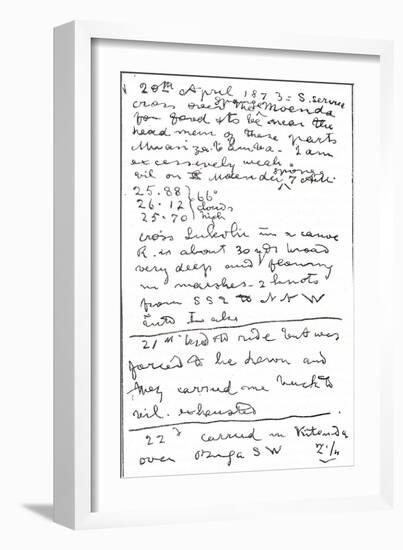 20th April 1873 = S. service
cross over the sponge Moenda
for food & to be near the
head men of these parts
Moanzambamba. I am
excessively weak
vil on Moenda sponge 7 A.M.
25.88 } 66°
26.12 } clouds
25.70 } high
cross Lokulu in a canoe
R. is about 30 yds broad
very deep and flowing
in marshes - 2 knots
from SSE to NNW
into Lake
21st tried to ride but was
forced to lie down and
they carried me back to
vil. exhausted
22d carried in Kitanda
over Buga SW 2 1/4